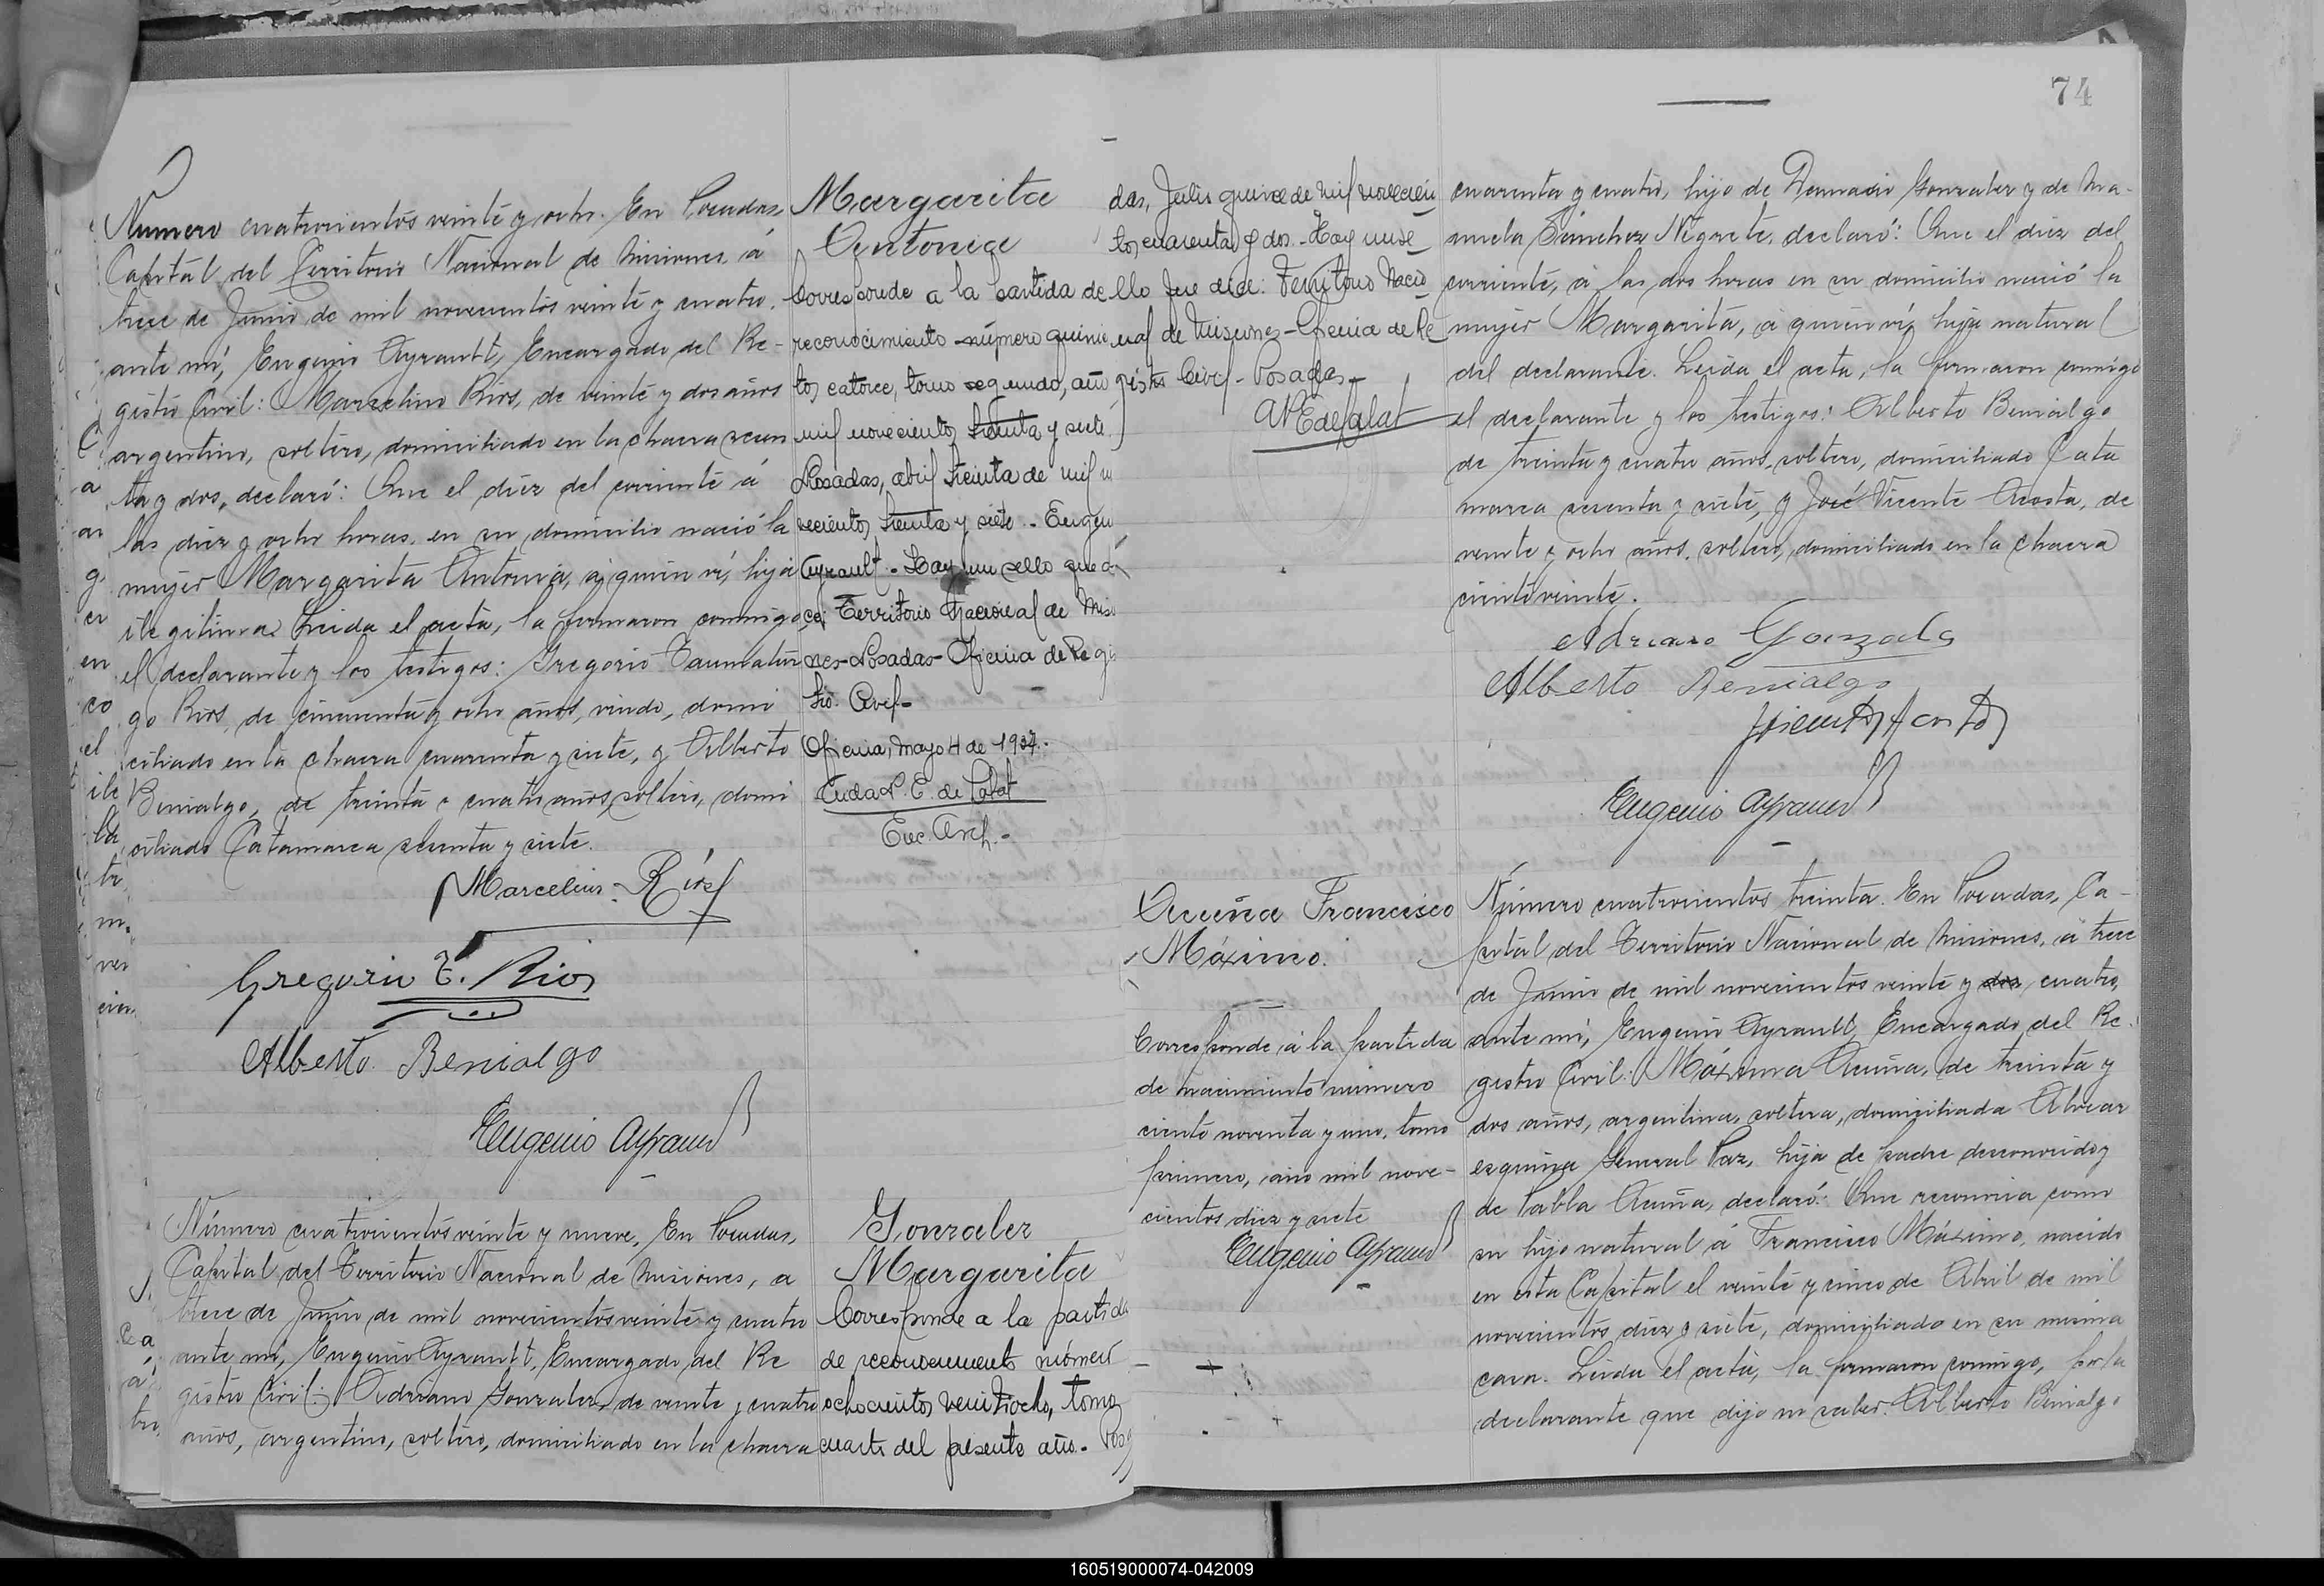 Número cuatrocientos veinte y ocho. En Posadas,
Capital del Territorio Nacional de Misiones, á
trece de Junio de mil novecientos veinte y cuatro,
ante mí, Eugenio Ayrault, Encargado del Re-
gistro Civil: Marcelino Ríos, de veinte y dos años
argentino, soltero, domiciliado en la chacra
ta y dos, declaró: Que el diez del corriente á
las diez y ocho horas, en su domicilio nació la
mujer Margarita Antonia, á quien ví, hija
ilegitima. Leida el acta, la firmaron conmigo
el declarante y los testigos: Gregorio Taumatur
go Rios, de cincuenta y ocho años, viudo, domi
ciliado en la chacra cuarenta y siete, y Alberto
Benialgo, de treinta y cuatro años, soltero, domi
ciliado Catamarca sesenta y siete.
Marcelino Ríos
Gregorio T. Rios
Alberto Benialgo
Eugenio Ayrault
Margarita
Antonia
Corresponde a la partida de
reconocimiento número quinien
tos catorce, tomo segundo, año
mil novecientos treinta y siete.
Posadas, abril treinta de mil no
vecientos treinta y siete.- Eugenio
Ayrault.- Hay un sello que di
ce: Territorio Nacional de Misio
nes-Posadas-Oficina de Regis
tro Civil-
Oficina, Mayo 4 de 1937.-
E. de Palat
Enc. Arch.-
Número cuatrocientos veinte y nueve. En Posadas,
Capital del Territorio Nacional de Misiones, a
trece de Junio de mil novecientos veinte y cuatro
ante mí, Eugenio Ayrault, Encargado del Re
gistro Civil: Adriano Gonzalez, de veinte y cuatro
años, argentino, soltero, domiciliado en la chacra
Gonzalez
Margarita
Corresponde a la partida
de reconocimiento número
ochocientos veintiocho, tomo
cuarto del presente año.- Posa
74
das, Julio quince de mil novecien
tos cuarenta y dos.- Hay un se
llo que dice: Territorio Nacio
nal de Misiones-Oficina de Re
gistro Civil-Posadas-
cuarenta y cuatro, hijo de Damacio Gonzalez y de Ma-
nuela Sánchez Negrete, declaró: Que el diez del
corriente, á las dos horas en su domicilio nació la
mujer Margarita, á quien ví, hija natural
del declarante. Leida el acta, la firmaron conmigo
el declarante y los testigos: Alberto Benialgo
de treinta y cuatro años, soltero, domiciliado Cata
marca sesenta y siete, y José Vicente Acosta, de
veinte y ocho años, soltero, domiciliado en la chacra
ciento veinte.
Adriano Gonzale
Alberto Benialgo
Eugenio Ayrault
Acuña Francisco
Máximo.
Corresponde á la partida
de nacimiento número
ciento noventa y uno, tomo
primero, año mil nove-
cientos diez y siete
Eugenio Ayrault
Número cuatrocientos treinta. En Posadas, Ca-
pital del Territorio Nacional de Misiones, á trece
de Junio de mil novecientos veinte y dos, cuatro,
ante mí, Eugenio Ayrault, Encargado del Re-
gistro Civil: Máxima Acuña, de treinta y
dos años, argentina, soltera, domiciliada Alvear
esquina General Paz, hija de padre desconocido y
de Pabla Acuña, declaró: Que reconocia como
su hijo natural á Francisco Máximo, nacido
en esta Capital el veinte y cinco de Abril de mil
novecientos diez y siete, domiciliado en su misma
casa. Leida el acta, la firmaron conmigo, por la
declarante que dijo no saber: Alberto Benialgo
160519000074-042009